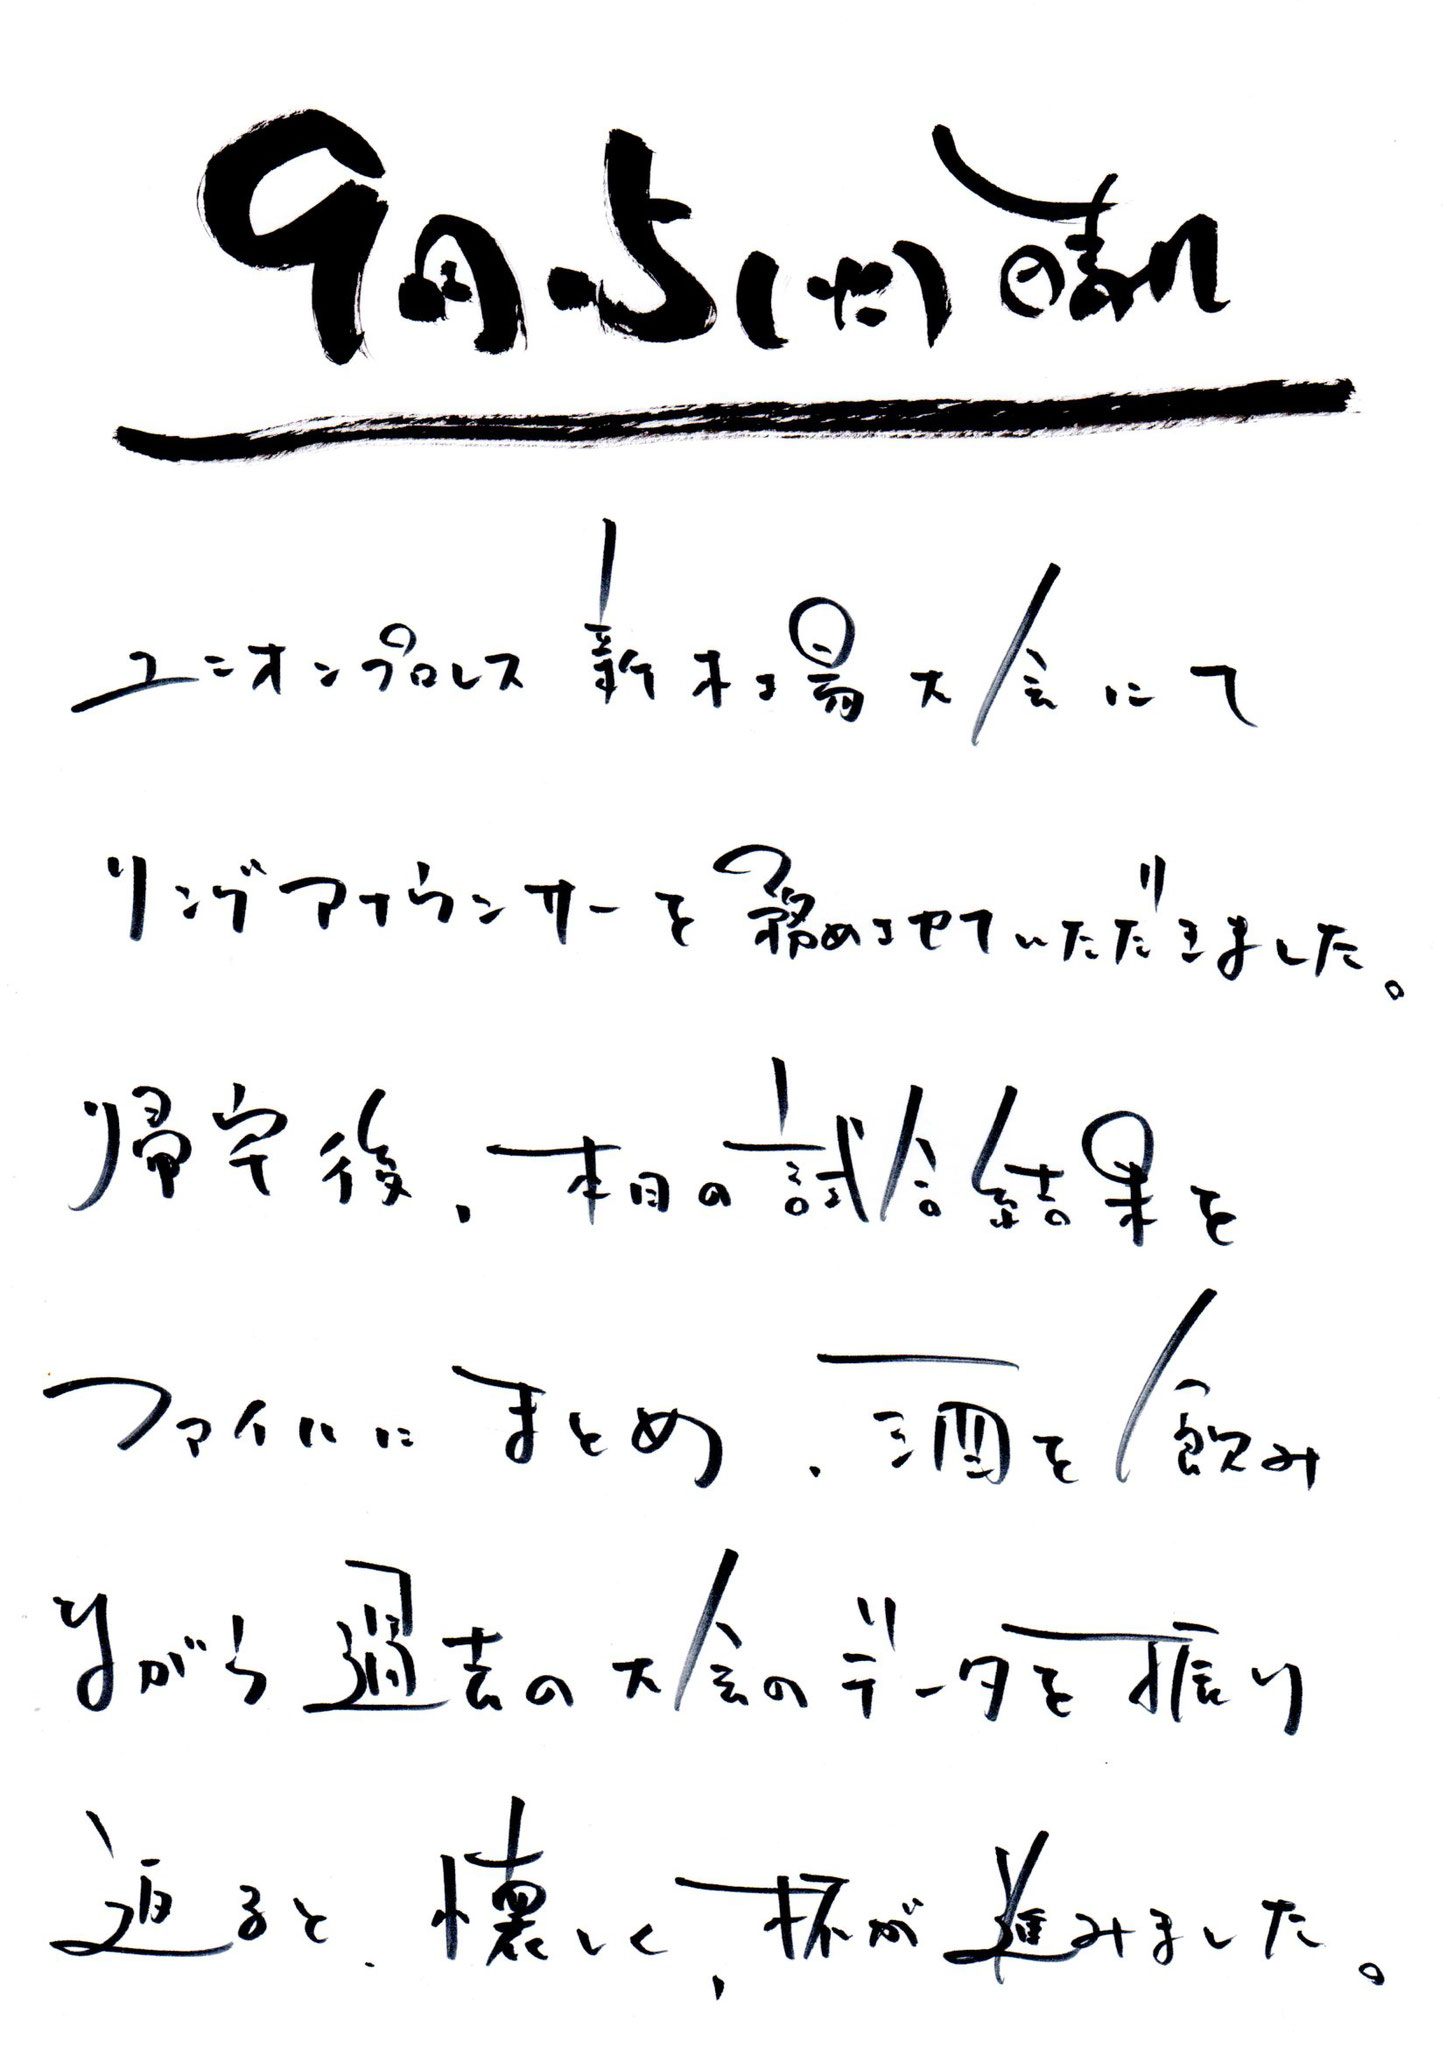 9月.5 晴れ
ユニオンプロレス新木場大会にて
リングアナウンサーを務めさせていただきました。
帰宅後、本日の試合結果を
ファイルにまとめ、酒を飲み
ながら過去の大会のデータを振り
返ると、懐しく、杯が進みました。